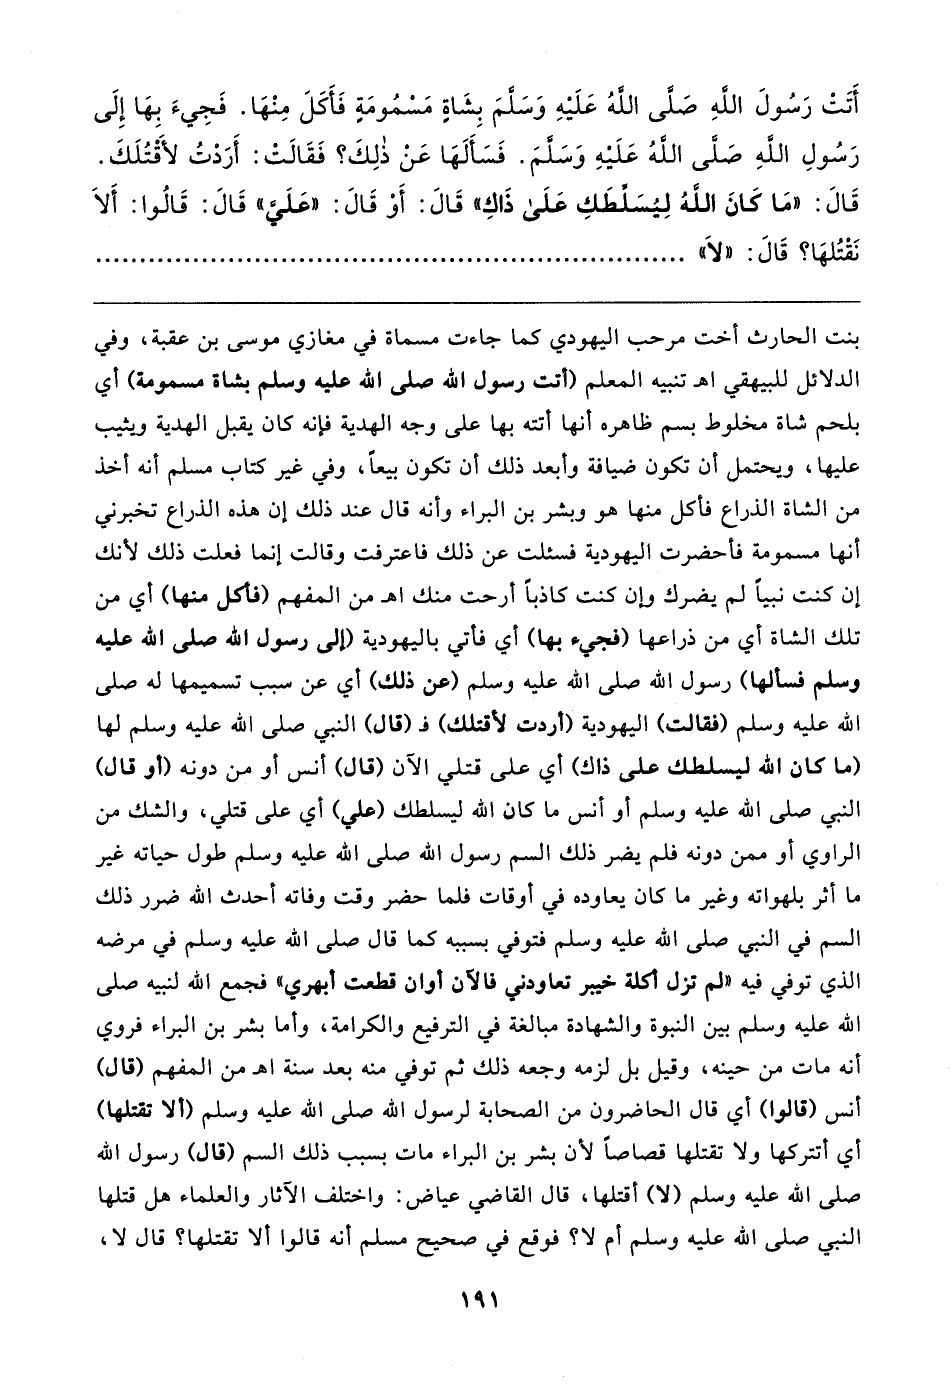 أَتَتْ رَسُولَ اللَّهِ صَلَّى اللَّهُ عَلَيْهِ وَسَلَّمَ بِشَاةٍ مَسْمُومَةٍ فَأَكَلَ مِنْهَا. فَجِيءَ بِهَا إِلَى
رَسُولِ اللَّهِ صَلَّى اللَّهُ عَلَيْهِ وَسَلَّمَ. فَسَأَلَهَا عَنْ ذٰلِكَ؟ فَقَالَتْ: أَرَدْتُ لأَقْتُلَكَ.
قَالَ: «مَا كَانَ اللَّهُ لِيُسَلِّطَكِ عَلَىٰ ذَاكِ» قَالَ: أَوْ قَالَ: «عَلَيَّ» قَالَ: قَالُوا: أَلاَ
نَقْتُلُهَا؟ قَالَ: «لاَ» ............................................................
بنت الحارث أخت مرحب اليهودي كما جاءت مسماة في مغازي موسى بن عقبة، وفي
الدلائل للبيهقي اهـ تنبيه المعلم (أتت رسول الله صلى الله عليه وسلم بشاة مسمومة) أي
بلحم شاة مخلوط بسم ظاهره أنها أتته بها على وجه الهدية فإنه كان يقبل الهدية ويثيب
عليها، ويحتمل أن تكون ضيافة وأبعد ذلك أن تكون بيعاً، وفي غير كتاب مسلم أنه أخذ
من الشاة الذراع فأكل منها هو وبشر بن البراء وأنه قال عند ذلك إن هذه الذراع تخبرني
أنها مسمومة فأحضرت اليهودية فسئلت عن ذلك فاعترفت وقالت إنما فعلت ذلك لأنك
إن كنت نبياً لم يضرك وإن كنت كاذباً أرحت منك اهـ من المفهم (فأكل منها) أي من
تلك الشاة أي من ذراعها (فجيء بها) أي فأتي باليهودية (إلى رسول الله صلى الله عليه
وسلم فسألها) رسول الله صلى الله عليه وسلم (عن ذلك) أي عن سبب تسميمها له صلى
الله عليه وسلم (فقالت) اليهودية (أردت لأقتلك) فـ (قال) النبي صلى الله عليه وسلم لها
(ما كان الله ليسلطك على ذاك) أي على قتلي الآن (قال) أنس أو من دونه (أو قال)
النبي صلى الله عليه وسلم أو أنس ما كان الله ليسلطك (علي) أي على قتلي، والشك من
الراوي أو ممن دونه فلم يضر ذلك السم رسول الله صلى الله عليه وسلم طول حياته غير
ما أثر بلهواته وغير ما كان يعاوده في أوقات فلما حضر وقت وفاته أحدث الله ضرر ذلك
السم في النبي صلى الله عليه وسلم فتوفي بسببه كما قال صلى الله عليه وسلم في مرضه
الذي توفي فيه «لم تزل أكلة خيبر تعاودني فالآن أوان قطعت أبهري» فجمع الله لنبيه صلى
الله عليه وسلم بين النبوة والشهادة مبالغة في الترفيع والكرامة، وأما بشر بن البراء فروي
أنه مات من حينه، وقيل بل لزمه وجعه ذلك ثم توفي منه بعد سنة اهـ من المفهم (قال)
أنس (قالوا) أي قال الحاضرون من الصحابة لرسول الله صلى الله عليه وسلم (ألا تقتلها)
أي أتتركها ولا تقتلها قصاصاً لأن بشر بن البراء مات بسبب ذلك السم (قال) رسول الله
صلى الله عليه وسلم (لا) أقتلها، قال القاضي عياض: واختلف الآثار والعلماء هل قتلها
النبي صلى الله عليه وسلم أم لا؟ فوقع في صحيح مسلم أنه قالوا ألا تقتلها؟ قال لا،
١٩١